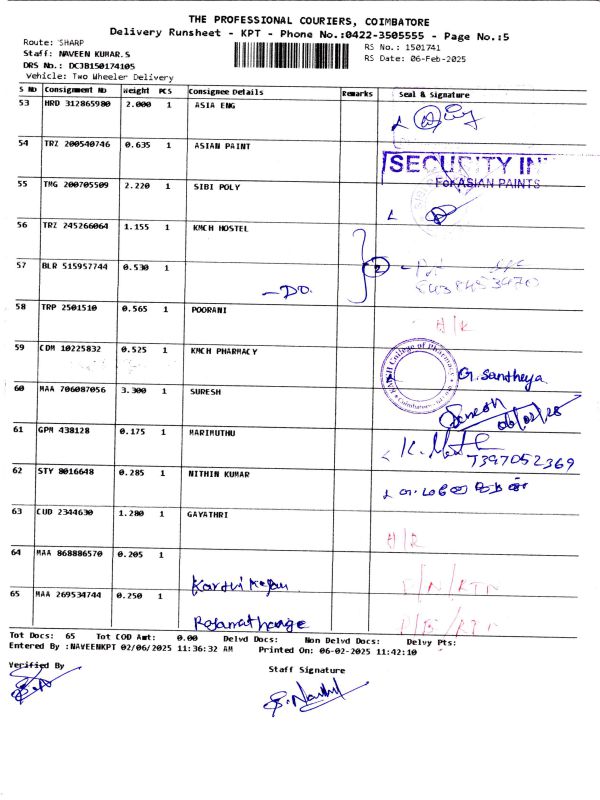 THE PROFESSIONAL COURIERS, COIMBATORE
Delivery Runsheet - KPT - Phone No.:0422-3505555 - Page No.:5
Route: SHARP
RS No.: 1501741
Staff: NAVEEN KUMAR.S
RS Date: 06-Feb-2025
DRS No.: DCJB150174105
Vehicle: Two Wheeler Delivery
S No Consignment No Weight PCS Consignee Details Remarks Seal & Signature
53 HRD 312865980 2.000 1 ASIA ENG
54 TRZ 200540746 0.635 1 ASIAN PAINT
SECURITY IN
For ASIAN PAINTS
55 TMG 200705509 2.220 1 SIBI POLY
56 TRZ 245266064 1.155 1 KMCH HOSTEL
57 BLR 515957744 0.530 1 -DO. 2
58 TRP 2501510 0.565 1 POORANI
59 CDM 10225832 0.525 1 KMCH PHARMACY G. Santheya
KMCH College of Pharmacy
Coimbatore
60 MAA 706087056 3.300 1 SURESH Suresh 06/02/25
61 GPM 438128 0.175 1 MARIMUTHU
7397052369
62 STY 8016648 0.285 1 NITHIN KUMAR
63 CUD 2344630 1.280 1 GAYATHRI
64 MAA 868886570 0.205 1
65 MAA 269534744 0.250 1
Tot Docs: 65 Tot COD Amt: 0.00 Delvd Docs: Non Delvd Docs: Delvy Pts:
Entered By :NAVEENKPT 02/06/2025 11:36:32 AM Printed On: 06-02-2025 11:42:10
Verified By
Staff Signature